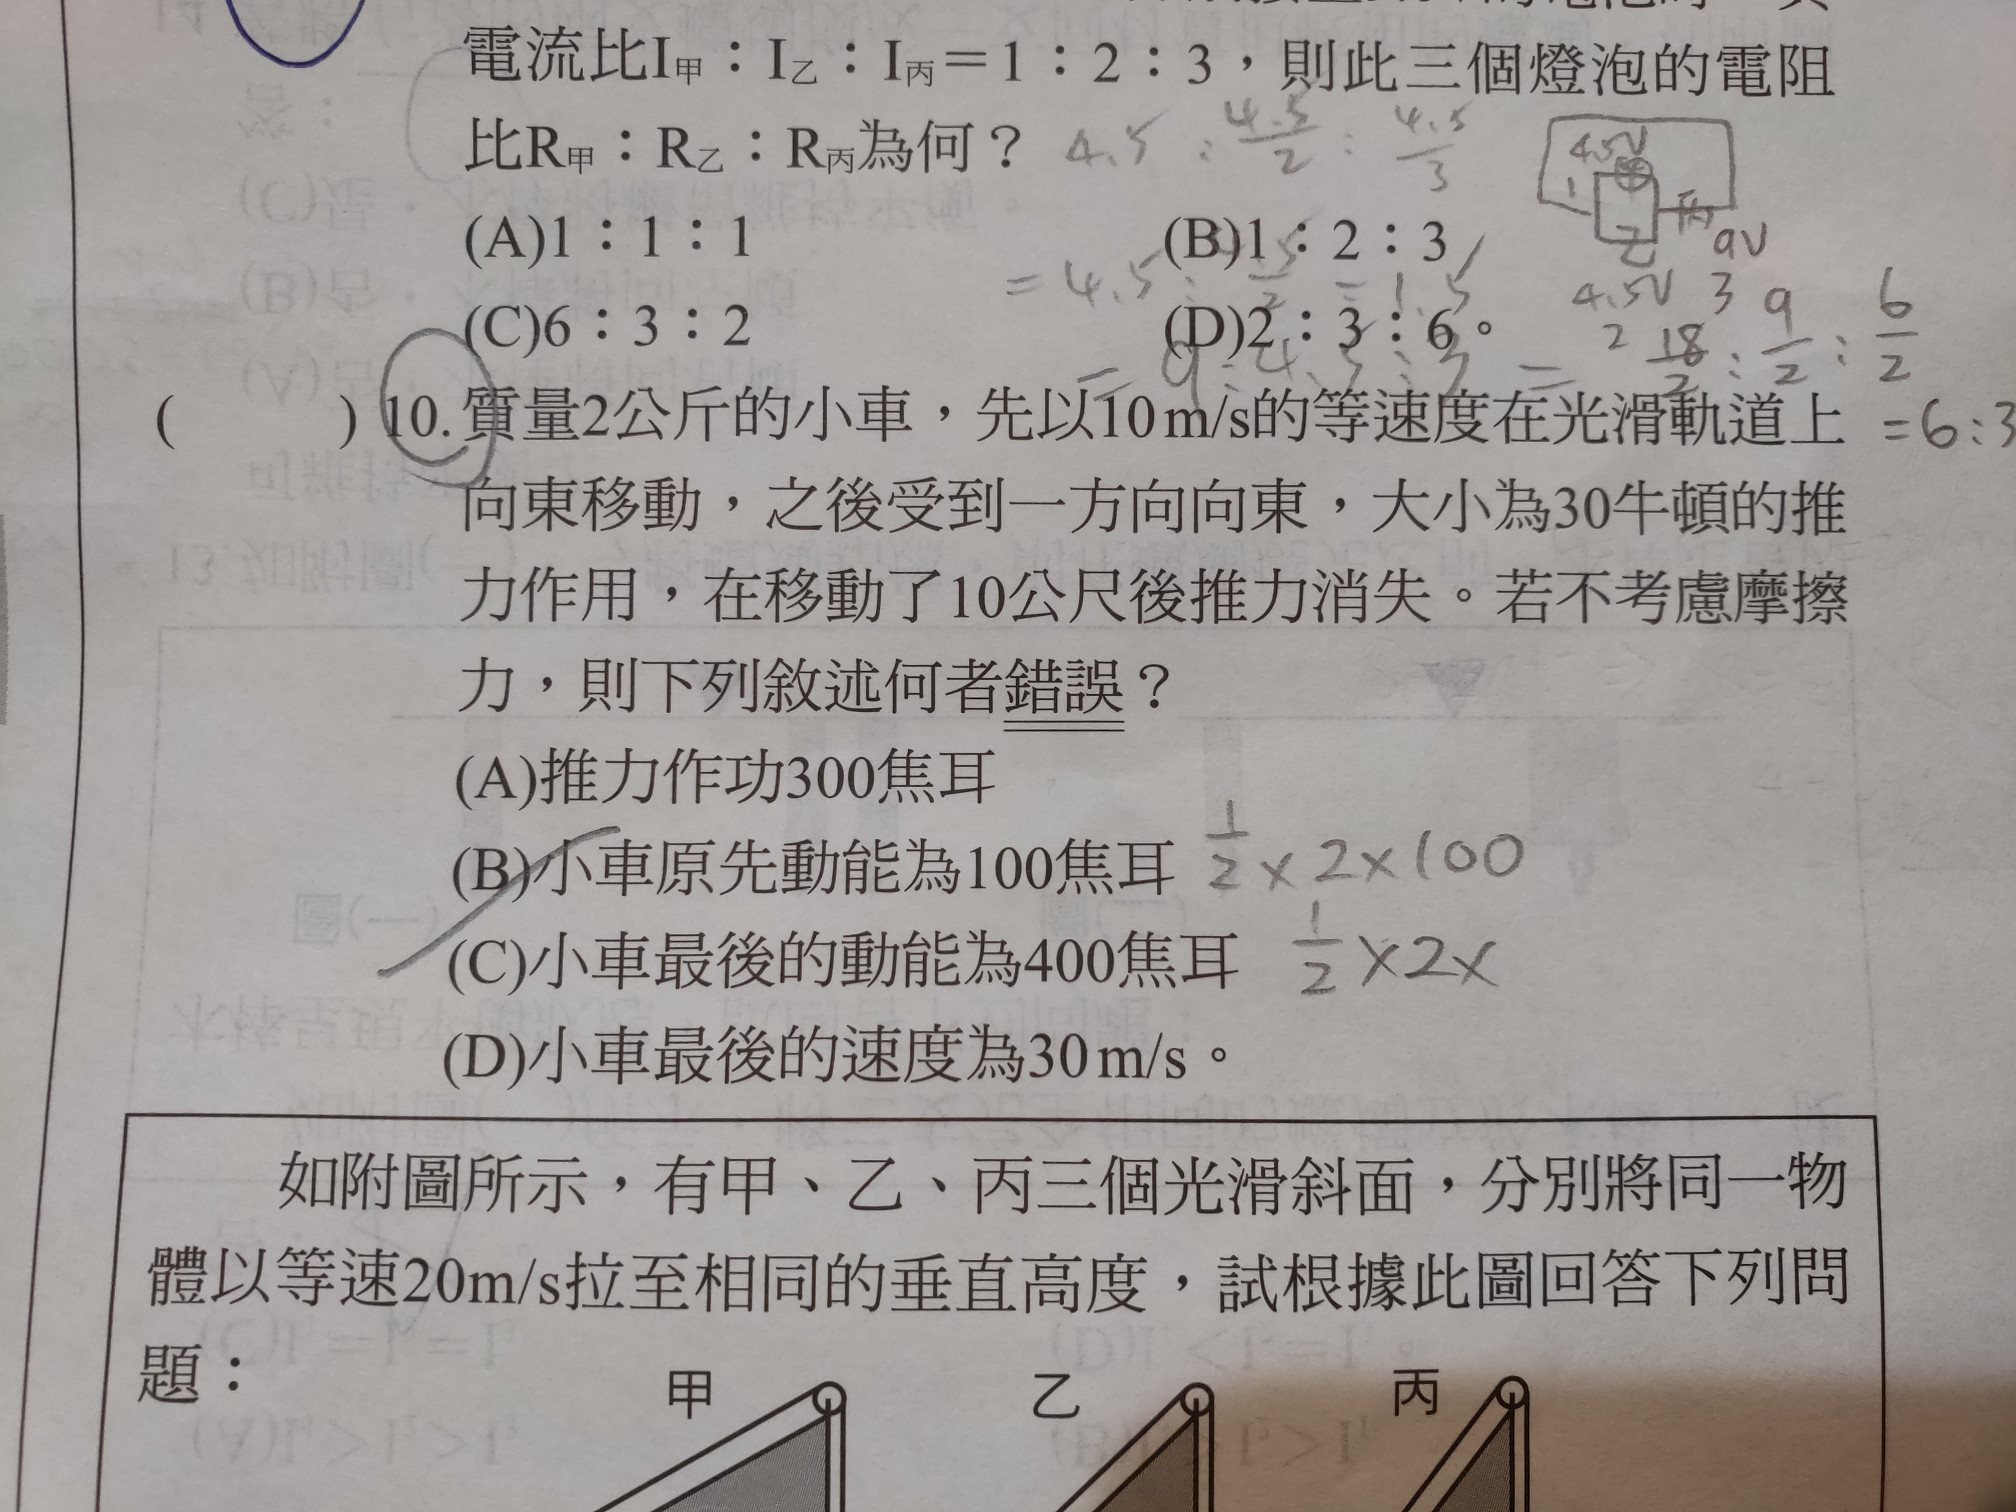 電流比I甲：I乙：I丙＝1：2：3，則此三個燈泡的電阻
比R甲：R乙：R丙為何？ 4.5 : 4.5/2 : 4.5/3
4.5V
甲
1
丙
乙
9V
(A)1：1：1 (B)1：2：3
4.5V 3
2
(C)6：3：2 (D)2：3：6。
= 9 : 4.5 : 3 = 18/2 : 9/2 : 6/2
= 6 : 3
( ) 10. 質量2公斤的小車，先以10 m/s的等速度在光滑軌道上
向東移動，之後受到一方向向東，大小為30牛頓的推
力作用，在移動了10公尺後推力消失。若不考慮摩擦
力，則下列敘述何者錯誤？
(A)推力作功300焦耳
(B)小車原先動能為100焦耳 1/2 × 2 × 100
(C)小車最後的動能為400焦耳 1/2 × 2 ×
(D)小車最後的速度為30 m/s。
如附圖所示，有甲、乙、丙三個光滑斜面，分別將同一物
體以等速20m/s拉至相同的垂直高度，試根據此圖回答下列問
題：
甲 乙 丙